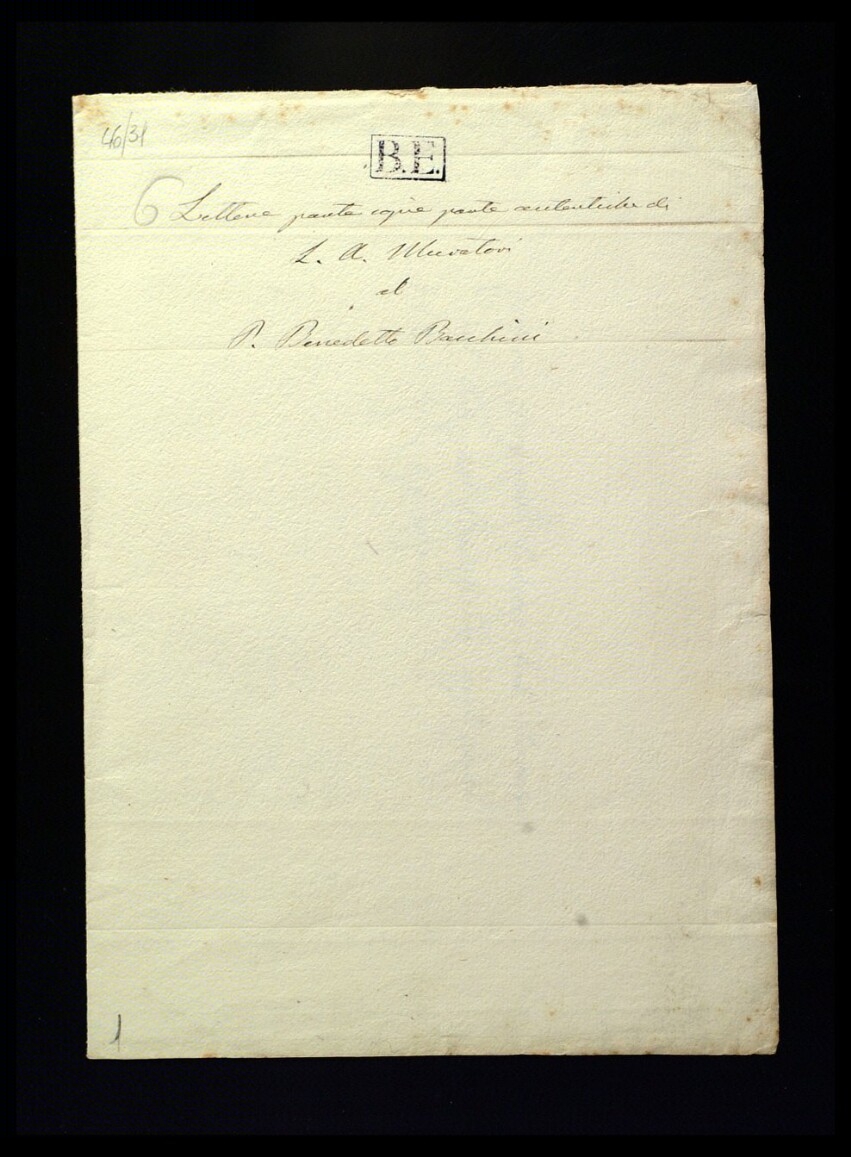 46/31
B.E.
6 Lettere parte copie parte autentiche di
L. A. Muratori
al
P. Benedetto Bacchini
1